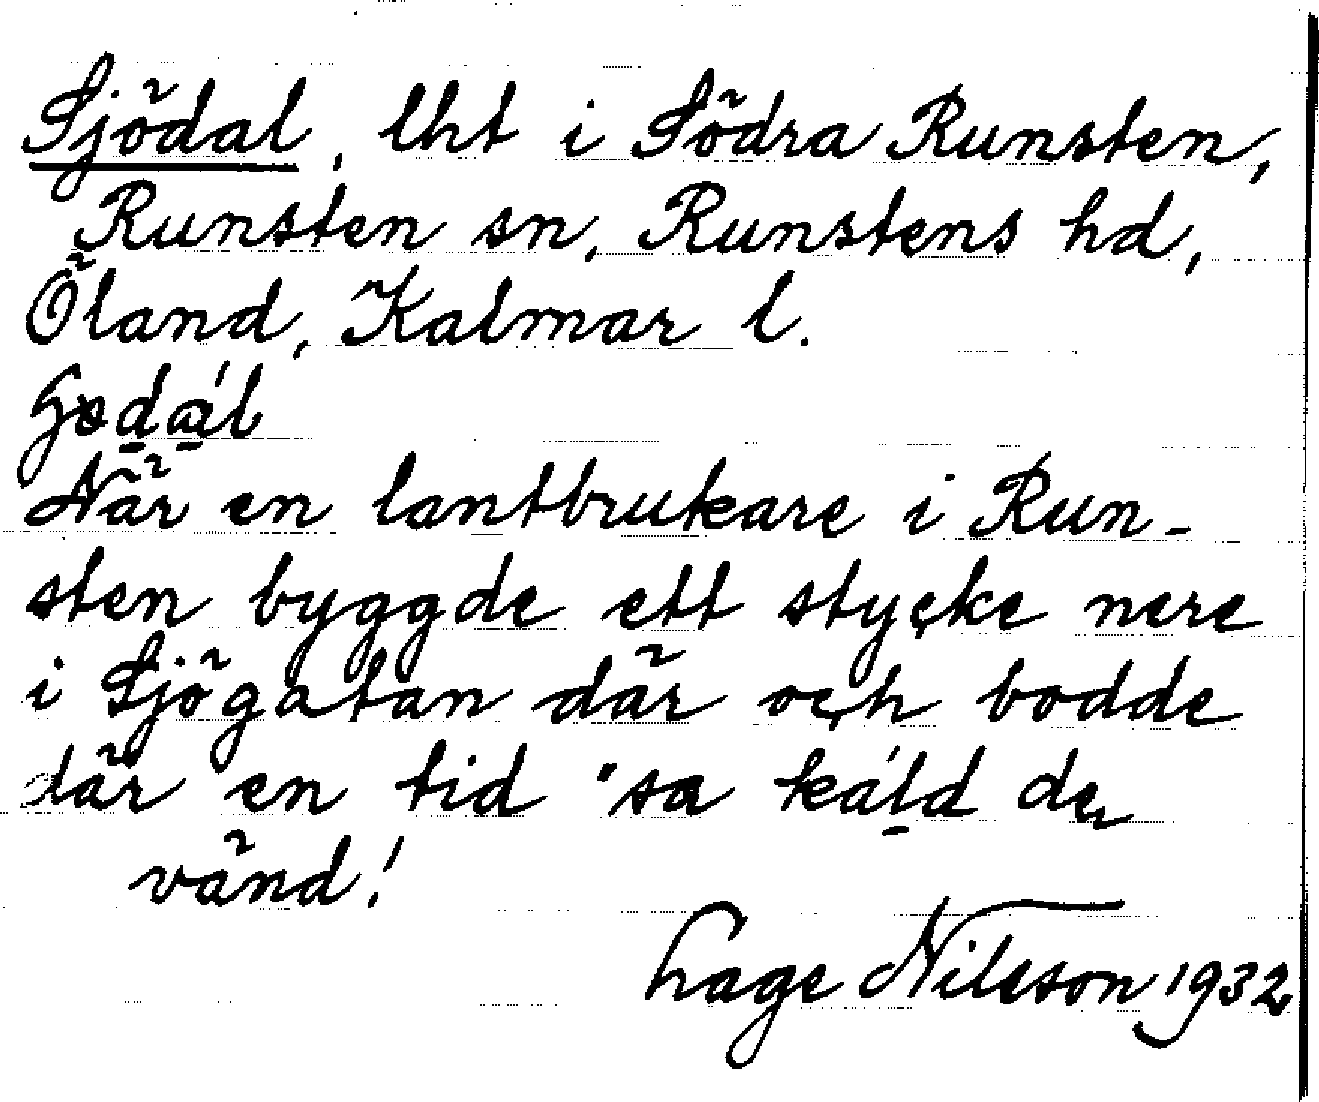 Sjödal, lht i Södra Runsten,
Runsten sn, Runstens hd,
Öland, Kalmar l.
När en lantbrukare i Run-
sten byggde ett stycke nere
i Sjögatan där och bodde
där en tid "sa káld de
vänd!
Lage Nilsson 1932